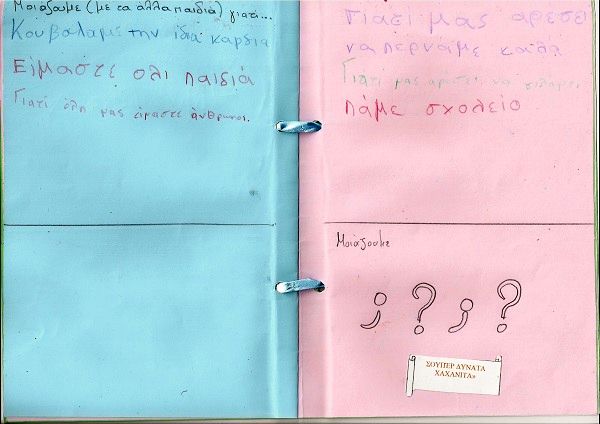 Μοιάζουμε (με τα άλλα παιδιά) γιατί...
Κουβαλάμε την ίδια καρδιά
Είμαστε ολι παιδιά
Γιατί όλη μας είμαστε άνθρωποι.
Γιατί μας αρέσει
να περνάμε καλά
Γιατί μας αρέσει να
πάμε σχολείο
Μοιάζουμε
; ? ; ?
ΣΟΥΠΕΡ ΔΥΝΑΤΑ
ΧΑΧΑΝΙΤΑ»